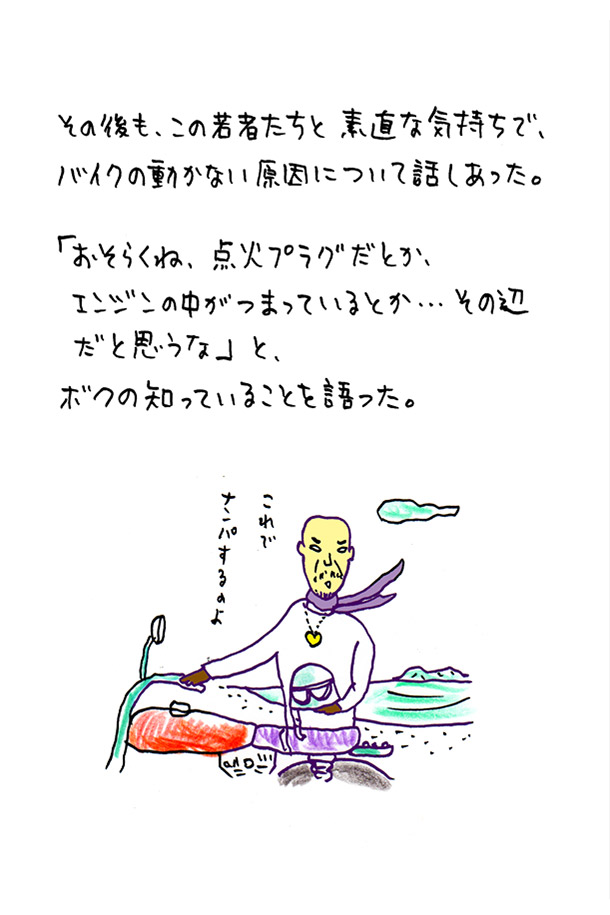 その後も、この若者たちと 素直な気持ちで、
バイクの動かない原因について話しあった。
「おそらくね、点火プラグだとか、
エンジンの中がつまっているとか…その辺
だと思うな」と、
ボクの知っていることを語った。
これで
ナンパするのよ